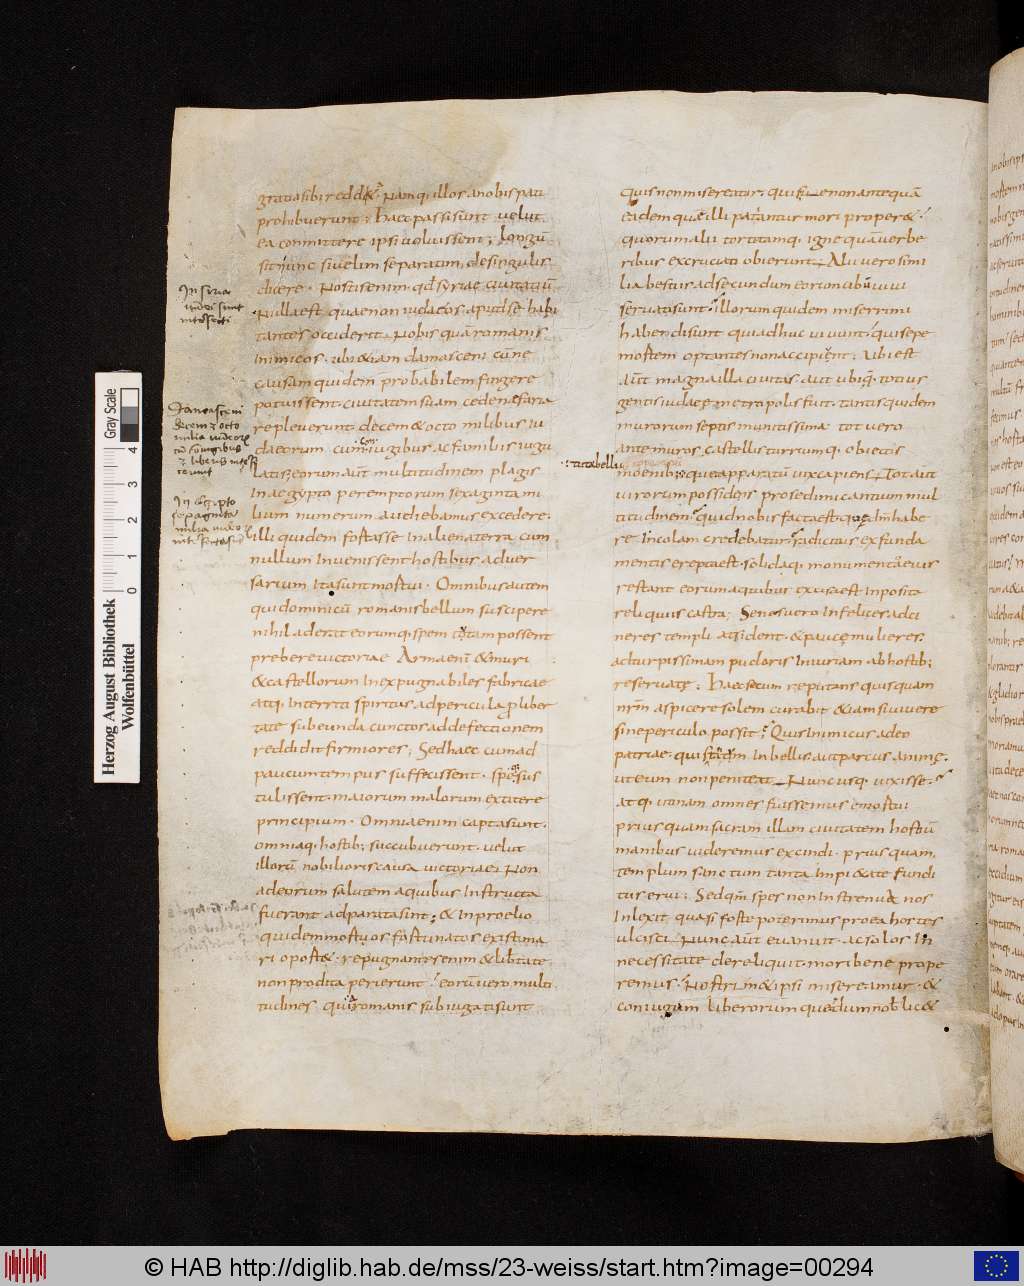 gratia sibi redd&. Nam qui illos a nobis pati
prohibuerunt; haec passi sunt uelut
ea committere ipsi uoluissent; Longū
sit nunc si uelim separatim de singulis
dicere. Nostis enim qd syriae ciuitatū
nulla est quae non iudaeos apud se habi
tantes occiderit. Nobis quā romanis
inimicos. ubi &iam damasceni cū ne
causam quidem probabilem fingere
potuissent. ciuitatem suam cede nefaria
repleuerunt. decem & octo milibus iu
daeorum cum iugibus ac familiis iugu
latis, eorum aūt multitudinem plagis
in aegypto peremptorum sexaginta mi
lium numerum audiebamus excedere.
illi quidem fortasse in aliena terra cum
nullum inuenissent hostibus aduer
sarium ita sunt mortui. Omnibus autem
qui dominicū romanis bellum suscipere
nihil aderat eorumq; spem totam possent
prebere uictoriae Arma enī & muri
& castellorum inexpugnabiles fabricae
atq; interriti spiritus ad pericula p liber
tate subeunda cunctos ad defectionem
reddidit firmiores; Sed haec cum ad
paucum tempus suffecissent. spesus
tulissent. maiorum malorum extitere
principium. Omnia enim capta sunt.
omniaq; hostib; succubuerunt. uelut
illorū nobilioris causa uictoriae. Non
ad eorum salutem a quibus instructa
fuerant adparata sint; & in proelio
quidem mortuos fortunatos existima
ri oport&. repugnantes enim & libertate
non prodita perierunt. eorū uero multi
tudines qui romanis subiugati sunt
In siria
iudei sunt
interfecti
Damasceni
decem & octo
milia iudeorū
cū coniugibus
& liberis interfe
cerunt
In egipto
sexaginta
milia iudeo
quis non misereatur. quis ue non ante quā
eidem quae illi patiantur mori proper&.
quorum alii torti tamq; igne quā uerbe
ribus excruciati obierunt. Alii uero simi
lia bestiis ad secundum eorum cibū uiui
seruati sunt. illorum quidem miserrimi
habendi sunt qui adhuc uiuunt. qui sepe
mortem optantes non accipiunt. Ubi est
aūt magna illa ciuitas. aut ubi q; totius
gentis iudaeę metropolis fuit. tantis quidem
murorum septis munitissima tot uero
ante muros castellis turrumq; obiectis
moenib; queę apparatū uix capiens. Tot aūt
uirorum possidens pro se dimicantium mul
titudinem. quid nobis facta est. quę dm habe
re incolam credebatur. radicitus ex funda
mentis erepta est. solidaq; monumenta eius
restant eorum a quibus excisa est inposita
reliquiis castra; Senes uero infelices ad ci
neres templi adsident. & paucę mulieres.
ad turpissimam pudoris iniuriam ab hostib;
reseruatę; Haec secum reputans quisquam
nrm aspicere solem curabit &iam si uiuere
sine periculo possit; Quis inimicus adeo
patriae. quis tam inbellis aut parcus animę.
ut eum non peniteat Nunc usq; uixisse.
Atq; utinam omnes fuissemus emortui
prius quam sacram illam ciuitatem hostiū
manibus uideremus excindi. prius quam
templum sanctum tanta impi&ate fundi
tus erui; Sed qm spes non instrenua nos
inlexit. quasi forte poterimus pro ea hostes
ulcisci. Nunc aūt euanuit. ac solos in
necessitate dereliquit. mori bene prope
remus. Nostrum & ipsi misereamur. &
coniugum liberorum que dum nob lic&
ut tabellū
Herzog August Bibliothek
Wolfenbüttel
0 1 2 3 4
Gray Scale
© HAB http://diglib.hab.de/mss/23-weiss/start.htm?image=00294